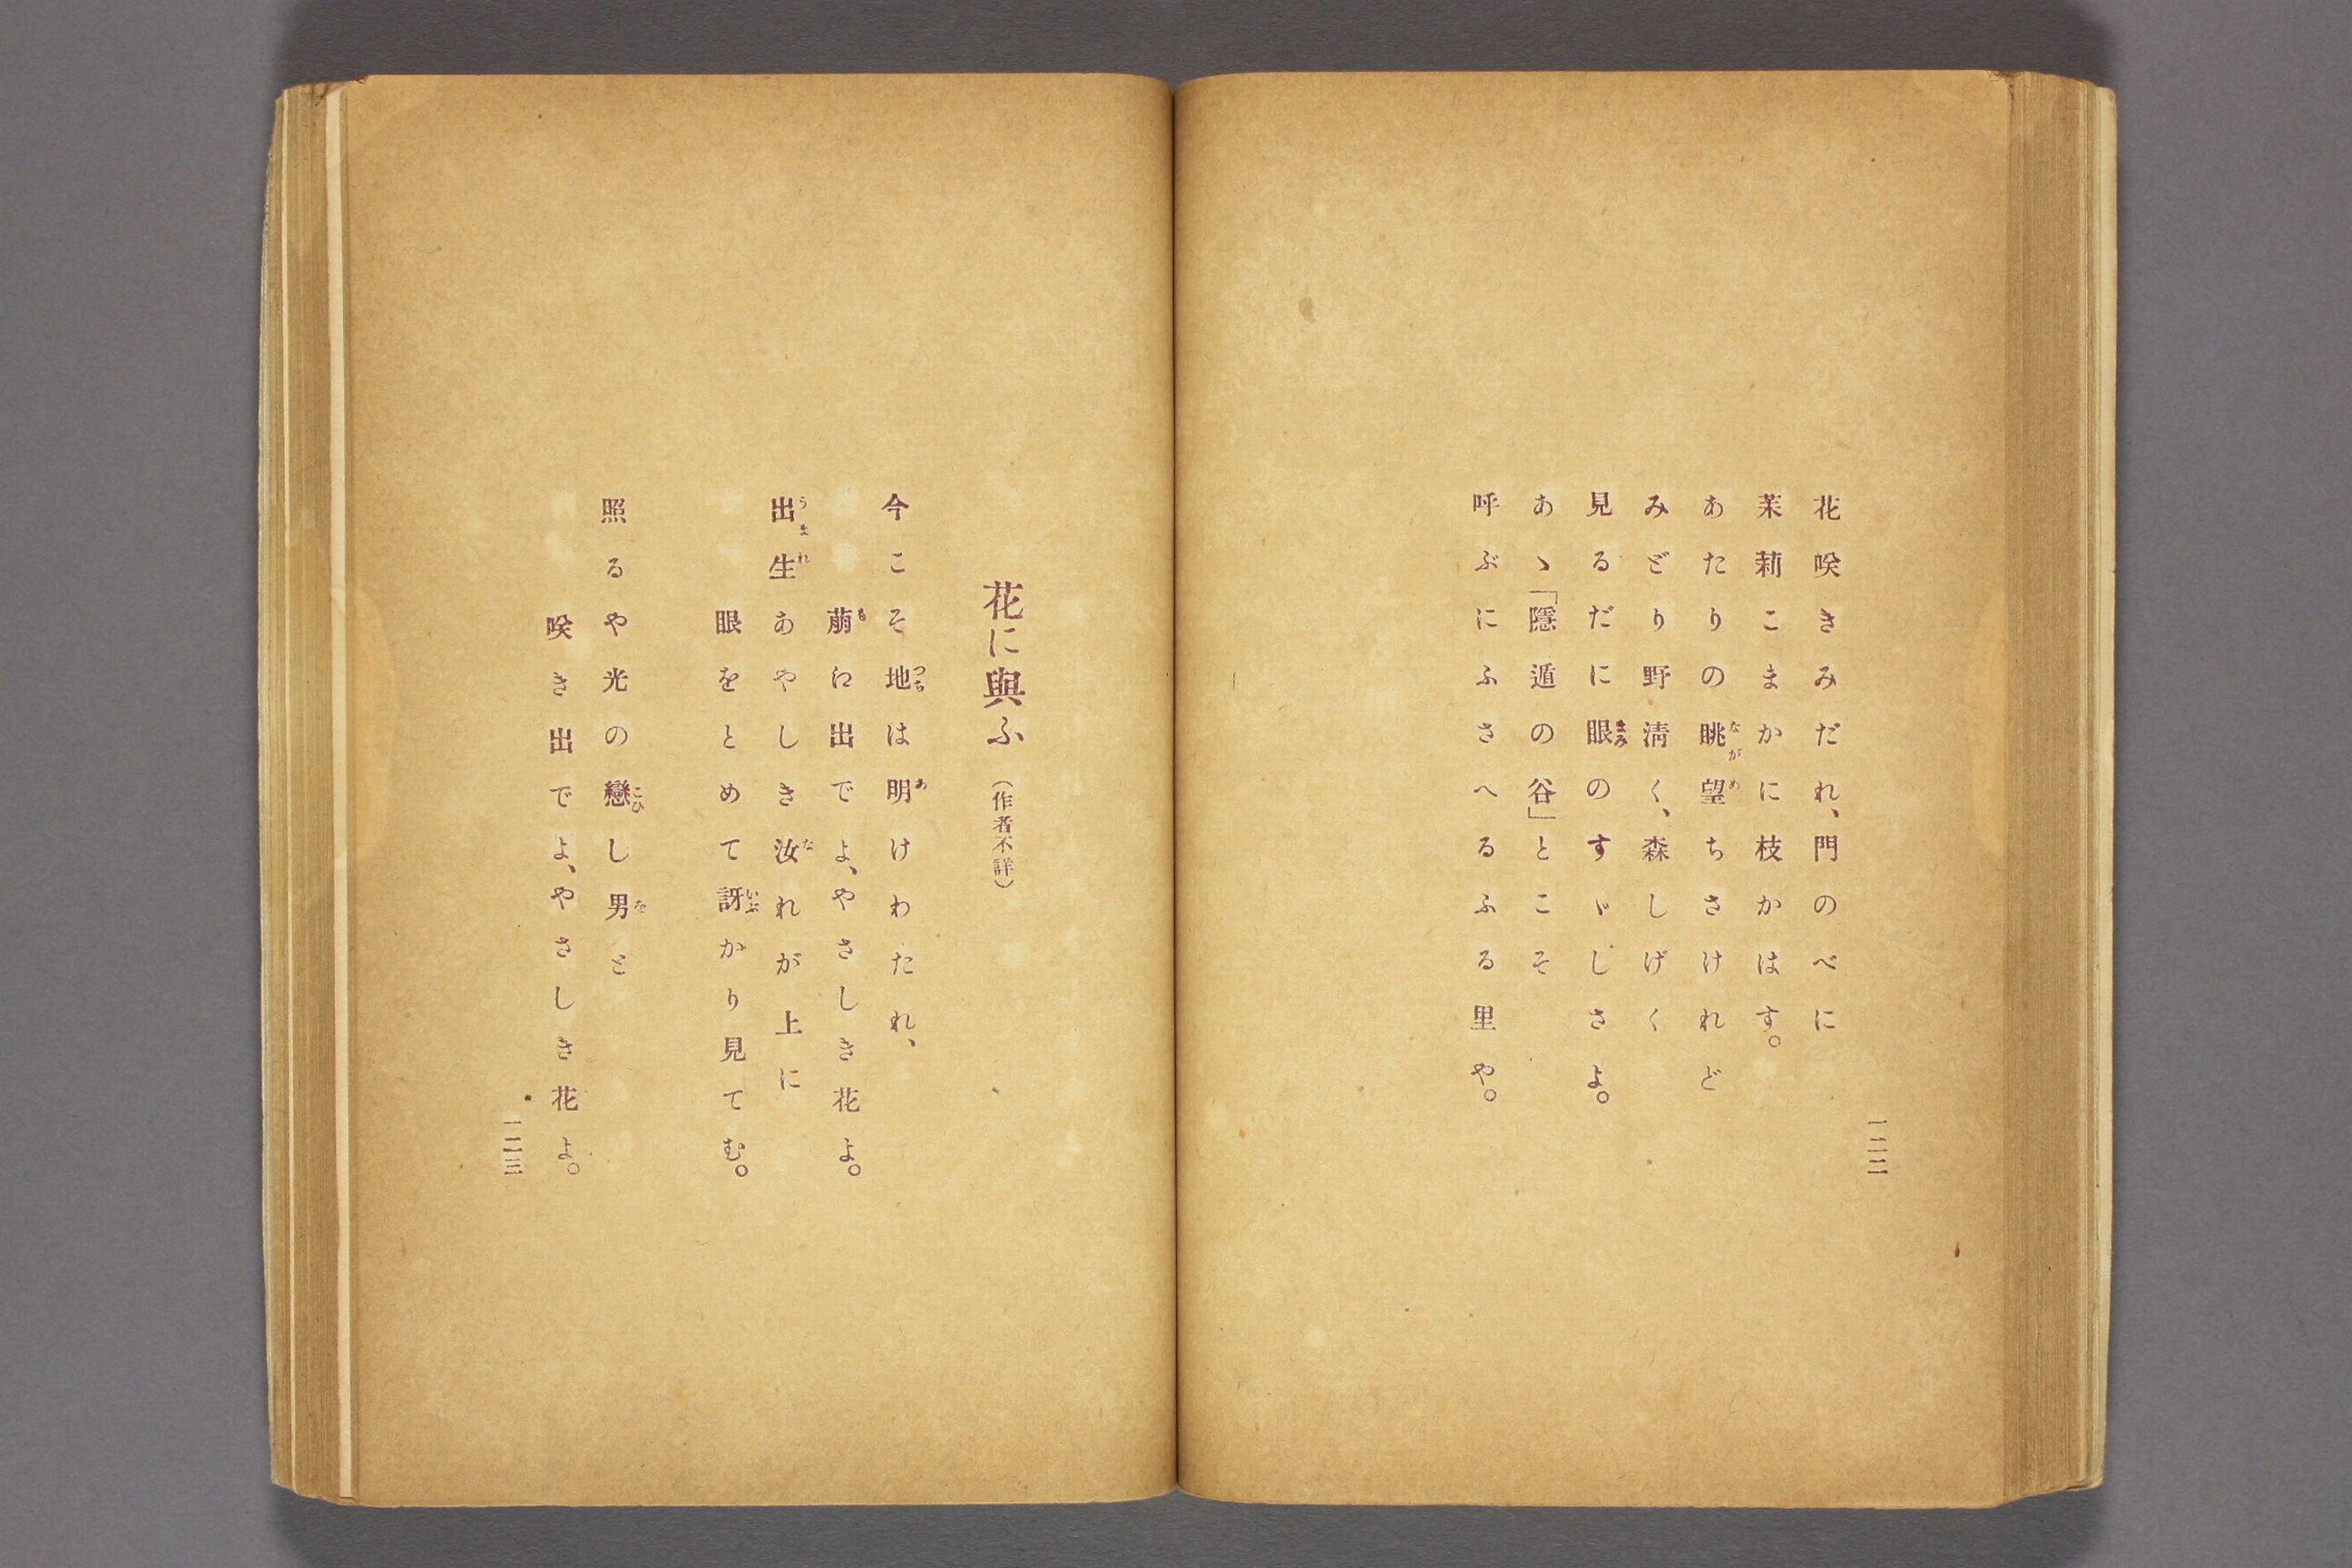 花咲きみだれ、門のべに
茉莉こまかに枝かはす。
あたりの眺望ちさけれど
みどり野淸く、森しげく
見るだに眼のすゞしさよ。
あゝ「隱遁の谷」とこそ
呼ぶにふさへるふる里や。
一二二
花に與ふ（作者不詳）
今こそ地は明けわたれ、
萠え出でよ、やさしき花よ。
出生あやしき汝れが上に
眼をとめて訝かり見てむ。
照るや光の戀し男と
咲き出でよ、やさしき花よ。
一二三